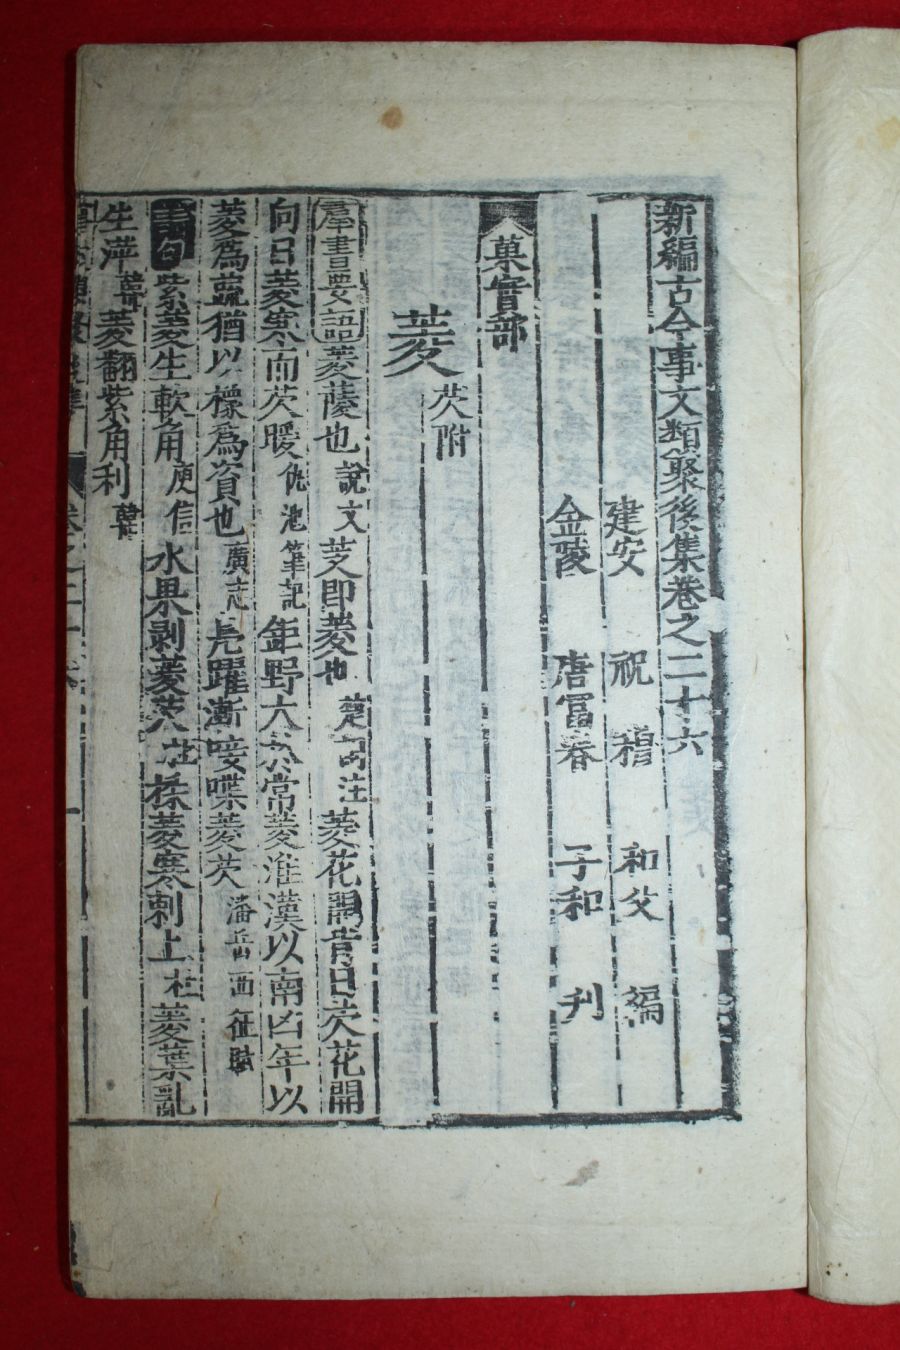 新編古今事文類聚後集卷之二十六
建安 祝 穆 和父 編
金陵 唐冨春 子和 刋
菓實部
菱 芡附
羣書要語菱蔆也說文芰即菱也楚辭注菱花開背日芡花開
向日菱寒而芡暖仇池筆記鉅野大亦常菱淮漢以南凶年以
菱爲蔬猶以橡爲資也廣志鳬躍漸唼喋菱芡潘岳西征賦
書句紫菱生軟角庾信水果剥菱芡莊採菱寒刺上杜菱葉乱
生萍韓菱翻紫角利韓